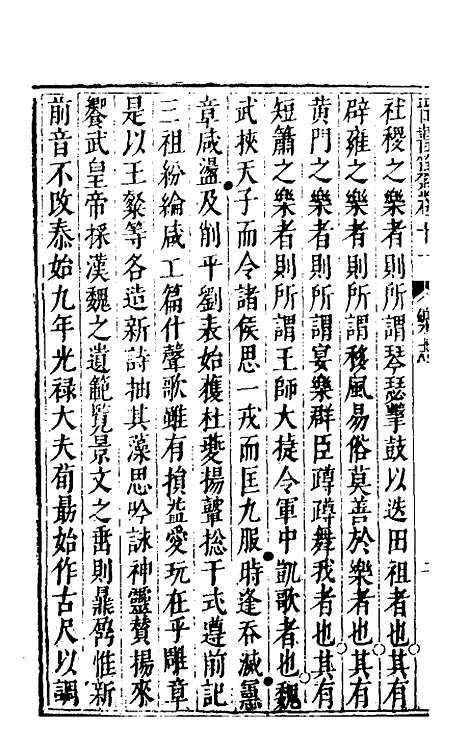 晉書
樂志
社稷之樂者則所謂琴瑟擊鼓以迭田祖者也其有
辟雍之樂者則所謂移風易俗莫善於樂者也其有
黃門之樂者則所謂宴樂群臣蹲蹲舞我者也其有
短簫之樂者則所謂王師大捷令軍中凱歌者也魏
武挾天子而令諸侯思一戎而匡九服時逢吞滅
章咸盪及削平劉表始獲杜夔揚鼙揔干式遵前記
三祖紛綸咸工篇什聲歌雖有損益愛玩在乎雕章
是以王粲等各造新詩抽其藻思吟詠神靈贊揚來
饗武皇帝採漢魏之遺範覽景文之垂則鼎鼐惟新
前音不改泰始九年光祿大夫荀勗始作古尺以調